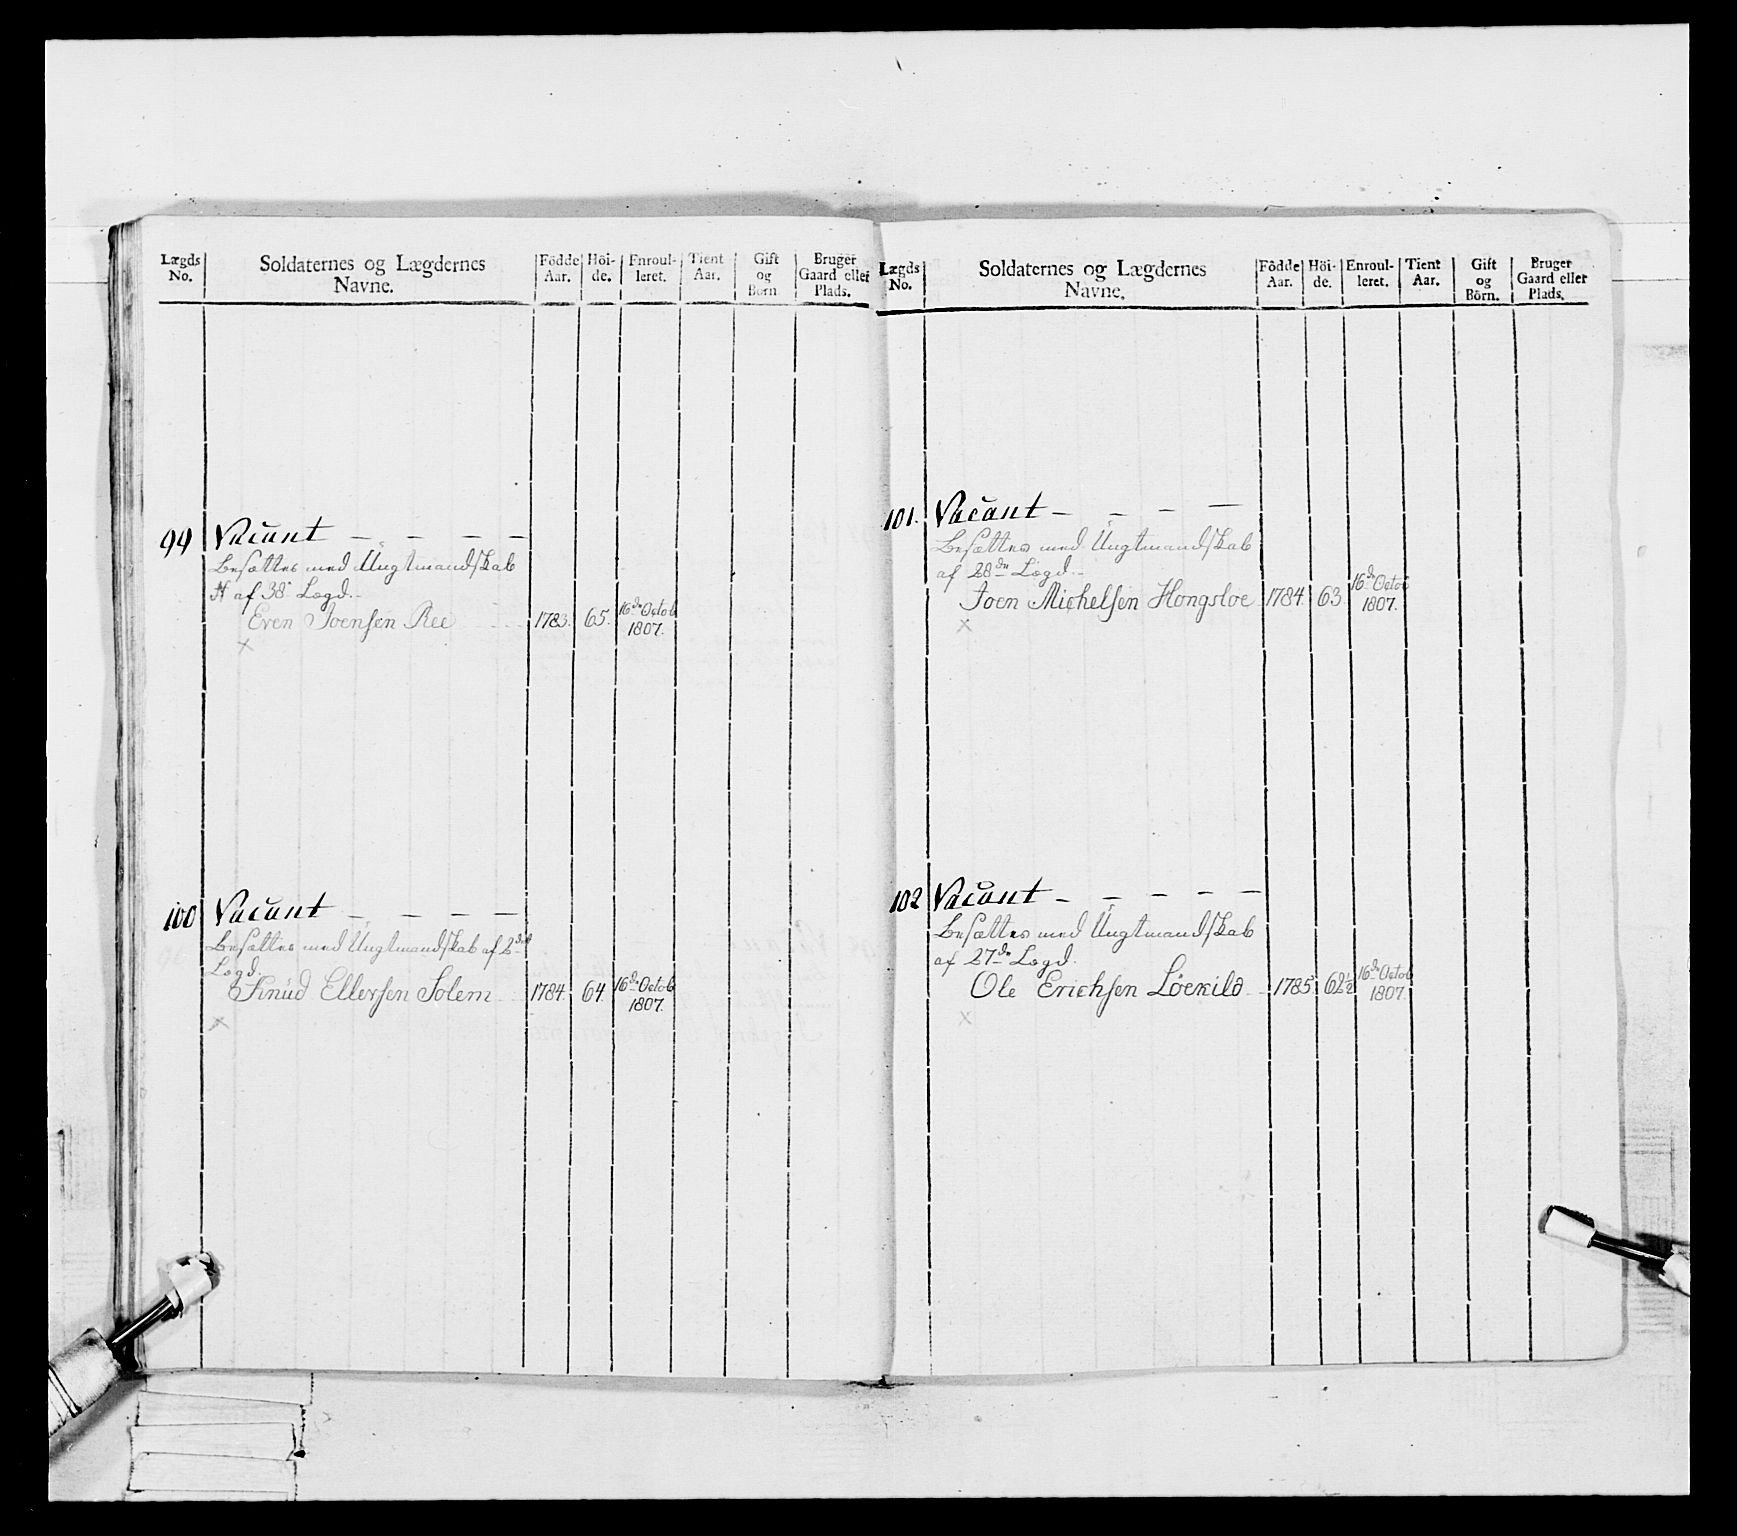 Lægds No. Soldaternes og Lægdernes Navne. Födde Aar. Höi-de. Enroul-leret. Tient Aar. Gift og Börn. Bruger Gaard eller Plads.
99 Vacant — — — —
Besættes med Ungtmandskab
af 38 Lægd.
Even Joensen Ree 1783. 65. 16de Octob 1807.
×
100 Vacant — — — —
Besættes med Ungtmandskab af 2den
Lægd.
Knud Ellersen Solem 1784. 64. 16de Octob 1807.
×
Lægds No. Soldaternes og Lægdernes Navne. Födde Aar. Höi-de. Enroul-leret. Tient Aar. Gift og Börn. Bruger Gaard eller Plads.
101. Vacant — — — —
Besættes med Ungtmandskab
af 28de Lægd.
Joen Michelsen Hongsloe 1784. 63 16de Octob 1807.
×
102 Vacant — — — — —
Besættes med Ungtmandskab
af 27de Lægd.
Ole Erichsen Löekild 1785 62½ 16de Octob 1807.
×